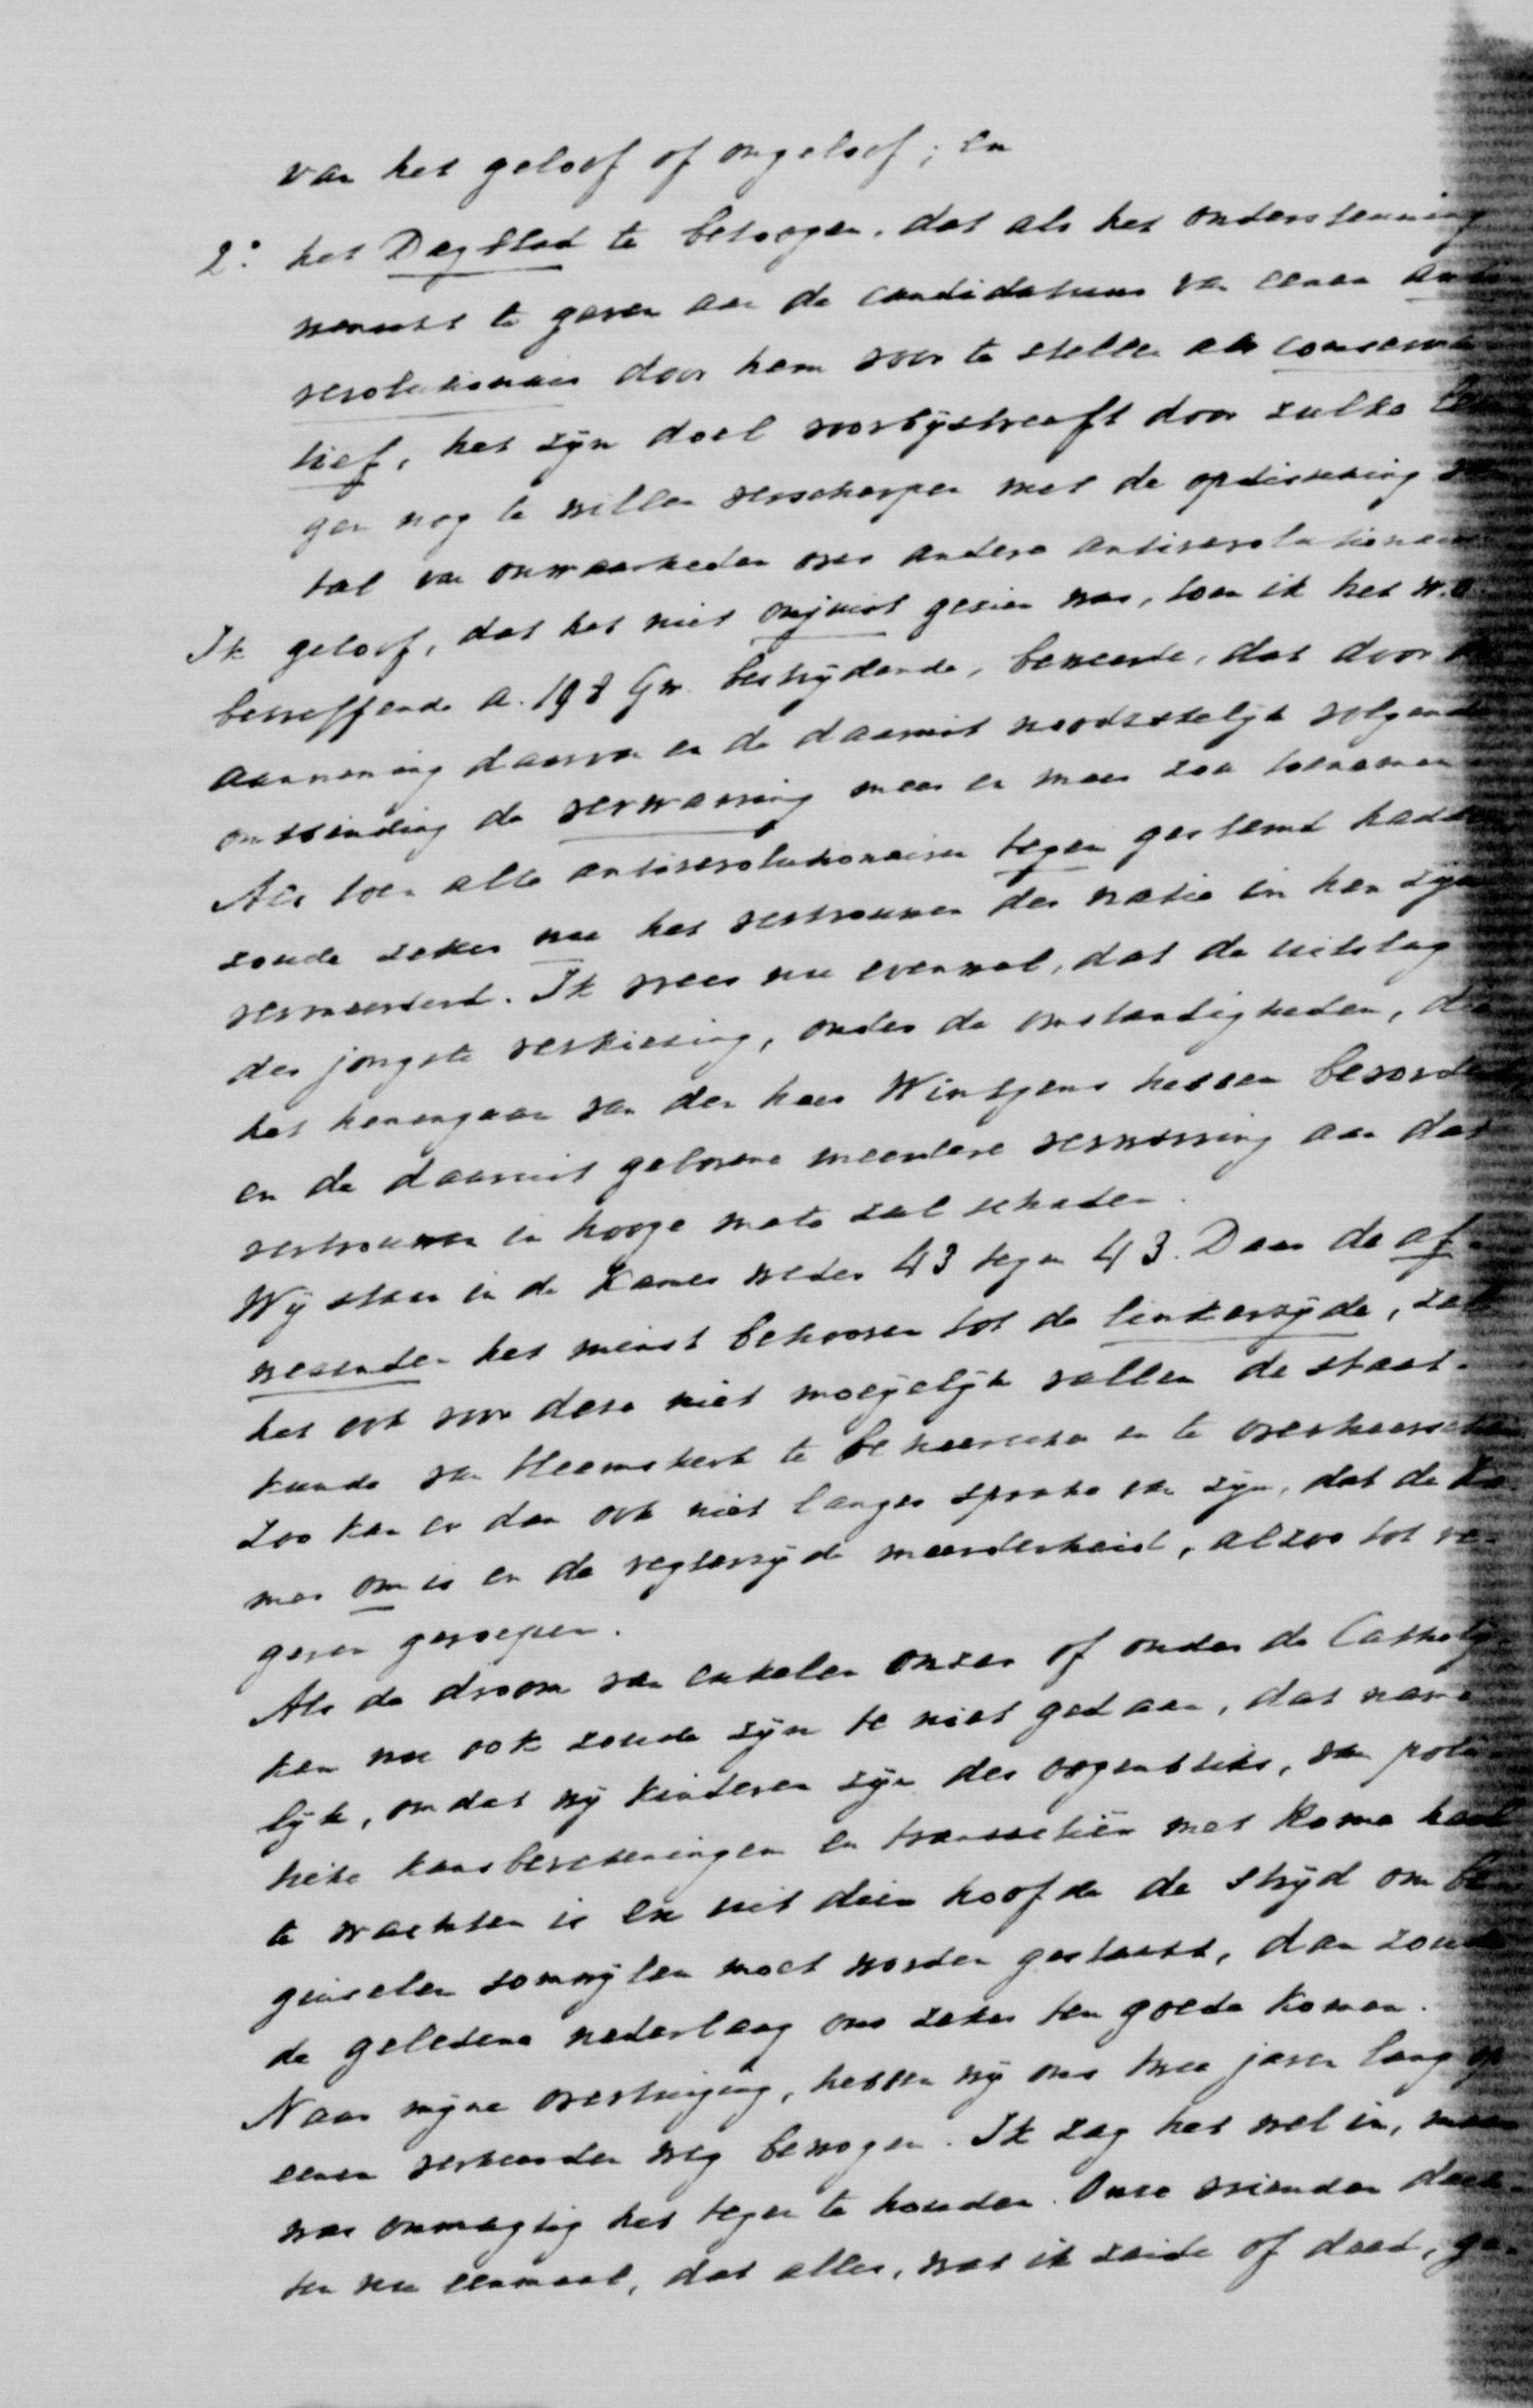 van het geloof of ongeloof; en
2°. het Dagblad te betoogen, dat als het ondersteuning
wenscht te geven aan de candidatuur van eenen anti
revolutionair door hem voor te stellen als conserva
tief, het zyn doel voorbijstreeft door zulke
gen nog te willen verscherpen met de opdissching
tal van onwaarheden over andere antirevolutionairen
Ik geloof, dat het niet onjuist gezien was, toen ik het w.o.
betreffende a. 198 Gw. bestrydende, beweerde, dat door de
aanneming daarvan en de daaruit noodzakelyk volgende
ontbinding de verwarring meer en meer zou toenemen
Als toen alle antirevolutionairen tegen gestemd hadden
zoude zeker nu het vertrouwen der natie in hen zyn
vermeerderd. Ik vrees nu evenwel, dat de uitslag
der jongste verkiezing, onder de omstandigheden, die
het heengaan van den heer Wintgens hebben bevorderd
en de daaruit geboren meerdere verwarring aan dat
vertrouwen in hooge mate zal schaden.
Wy staan in de Kamer weder 43 tegen 43. Daar de af-
wezenden het meest behooren tot de linkerzyde, zal
het ook voor deze niet moeyelyk vallen de staat-
kunde van Heemskerk te beheerschen en te overheerschen
Zoo kan er dan ook niet langer sprake van zyn, dat de Ka-
mer om is en de regterzyde meerderheid, alzoo tot re-
geren geroepen.
Als de droom van enkelen onzer of onder de Catholy-
ken nu ook zoude zyn te niet gedaan, dat name-
lyk, omdat wy kinderen zyn des oogenbliks, van poli-
tieke kansberekeningen en transactiën met Rome heil
te wachten is en uit dien hoofde de stryd om be-
ginselen somwylen moet worden gestaakt, dan zoude
de geledene nederlaag ons zeker ten goede komen.
Naar myne overtuiging, hebben wy ons twee jaren lang op
eenen verkeerden weg bewogen. Ik zag het wel in, maar
was onmagtig het tegen te houden. Onze vrienden dach-
ten nu eenmaal, dat alles, wat ik zeide of deed, ge-